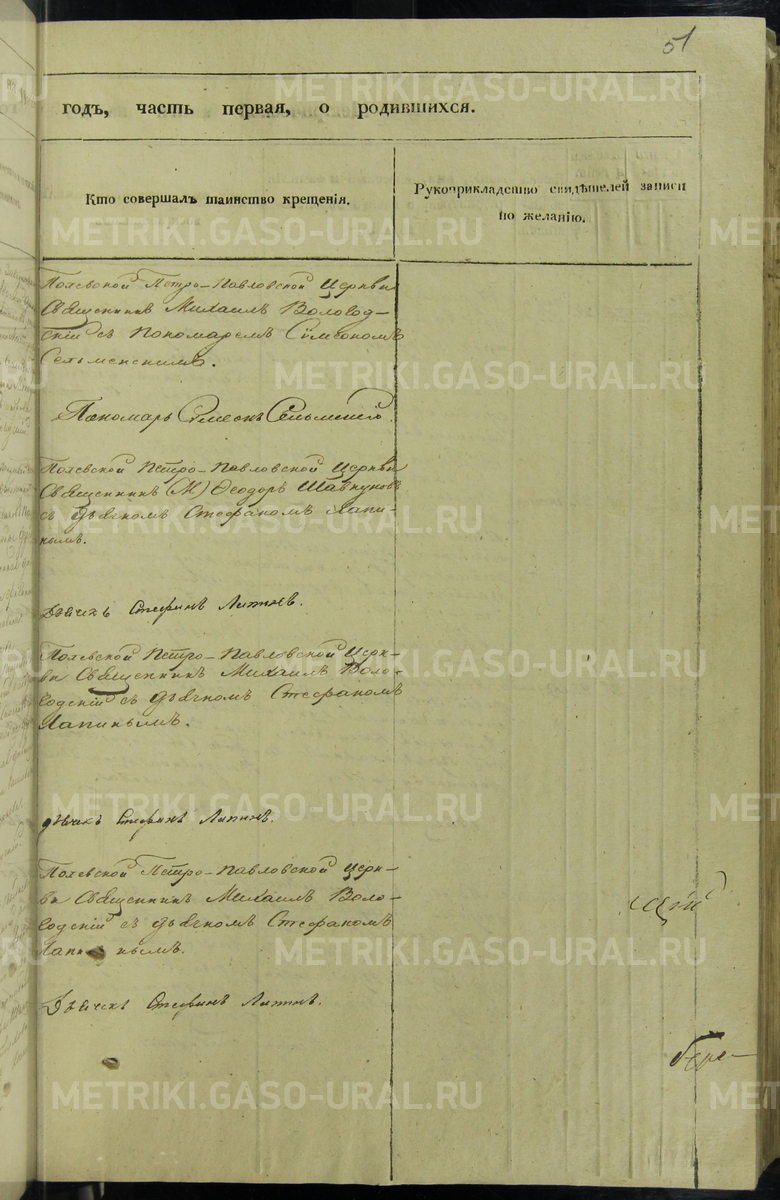 51
годъ, часть первая, о родившихся.
Кто совершалъ таинство крещенія.
Рукоприкладство свидѣтелей записи
по желанію.
Полевской Петро-Павловской Церкви
Священникъ Михаилъ Воловод-
скій съ пономаремъ Сѵмеономъ
Сельменскимъ.
Пономарь Сѵмеонъ
Полевской Петро-Павловской Церкви
Священникъ (М) Ѳеодоръ Шавкуновъ
съ дьячкомъ Стефаномъ Лапи-
нымъ.
Дьячекъ Стефанъ Лапинъ.
Полевской Петро-Павловской Церк-
ви Священникъ Михаилъ Воло-
водскій съ дьячкомъ Стефаномъ
Лапинымъ.
дьячекъ Стефанъ Лапинъ.
Полевской Петро-Павловской Церк-
ви Священникъ Михаилъ Воло-
водскій съ дьячкомъ Стефаномъ
Лапинымъ.
Дьячекъ Стефанъ Лапинъ.
щій
METRIKI.GASO-URAL.RU